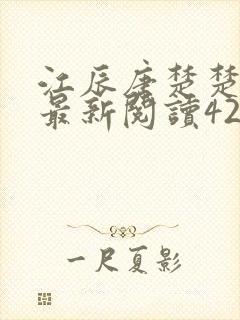 江辰唐楚楚
最新閱讀42
一尺夏影